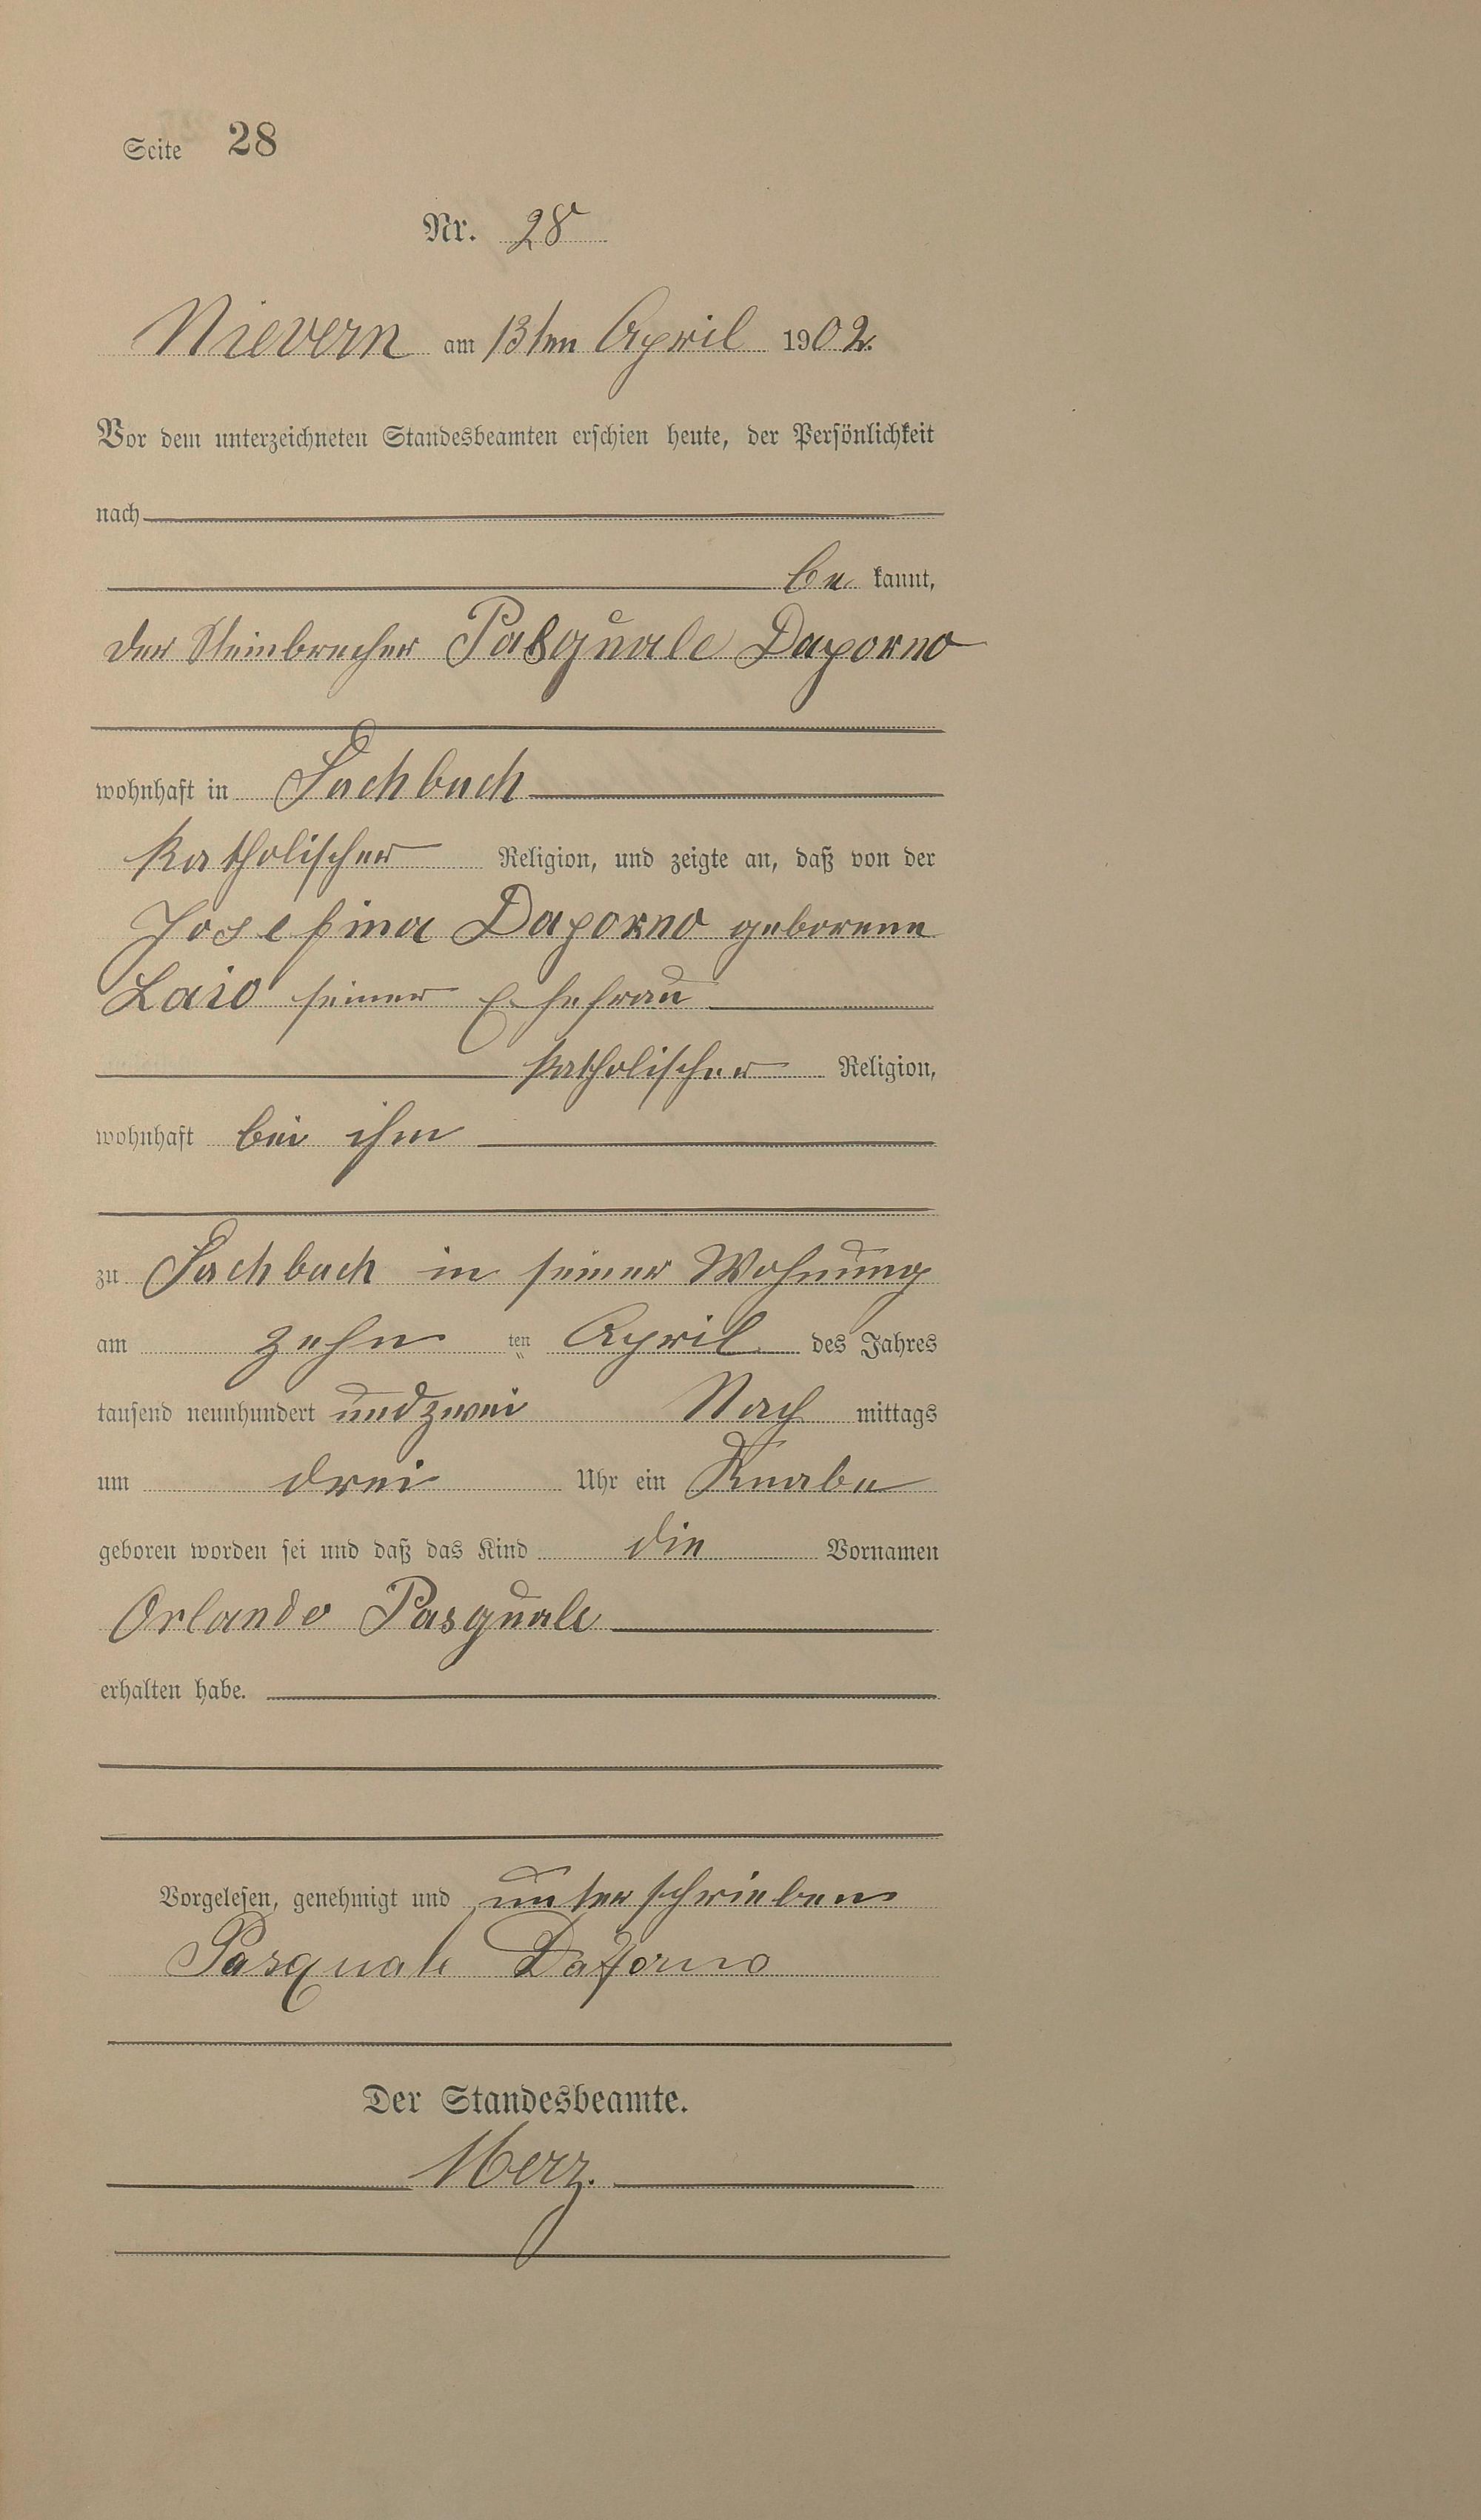 Seite 28
Nr. 28
Nievern am 13ten April 1902.
Vor dem unterzeichneten Standesbeamten erschien heute, der Persönlichkeit
nach
be kannt,
der Steinbrecher Pasquale Daporno
wohnhaft in Fachbach
katholischer Religion, und zeigte an, daß von der
Josefina Daporno geborene
Laio seiner Ehefrau
katholischer Religion,
wohnhaft bei ihm
zu Fachbach in seiner Wohnung
am zehn ten April des Jahres
tausend neunhundert und zwei Nach mittags
um drei Uhr ein Knabe
geboren worden sei und daß das Kind die Vornamen
Orlando Pasquale
erhalten habe.
Vorgelesen, genehmigt und unterschrieben
Pasquale
Der Standesbeamte.
Merz.